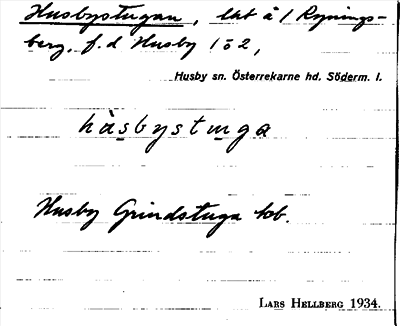 Husbystugan, lht å 1 Rynings-
berg, f.d Husby 1 o 2,
Husby sn. Österrekarne hd. Söderm. l.
hùsbystuga
Husby Grindstuga tob.
LARS HELLBERG 1934.